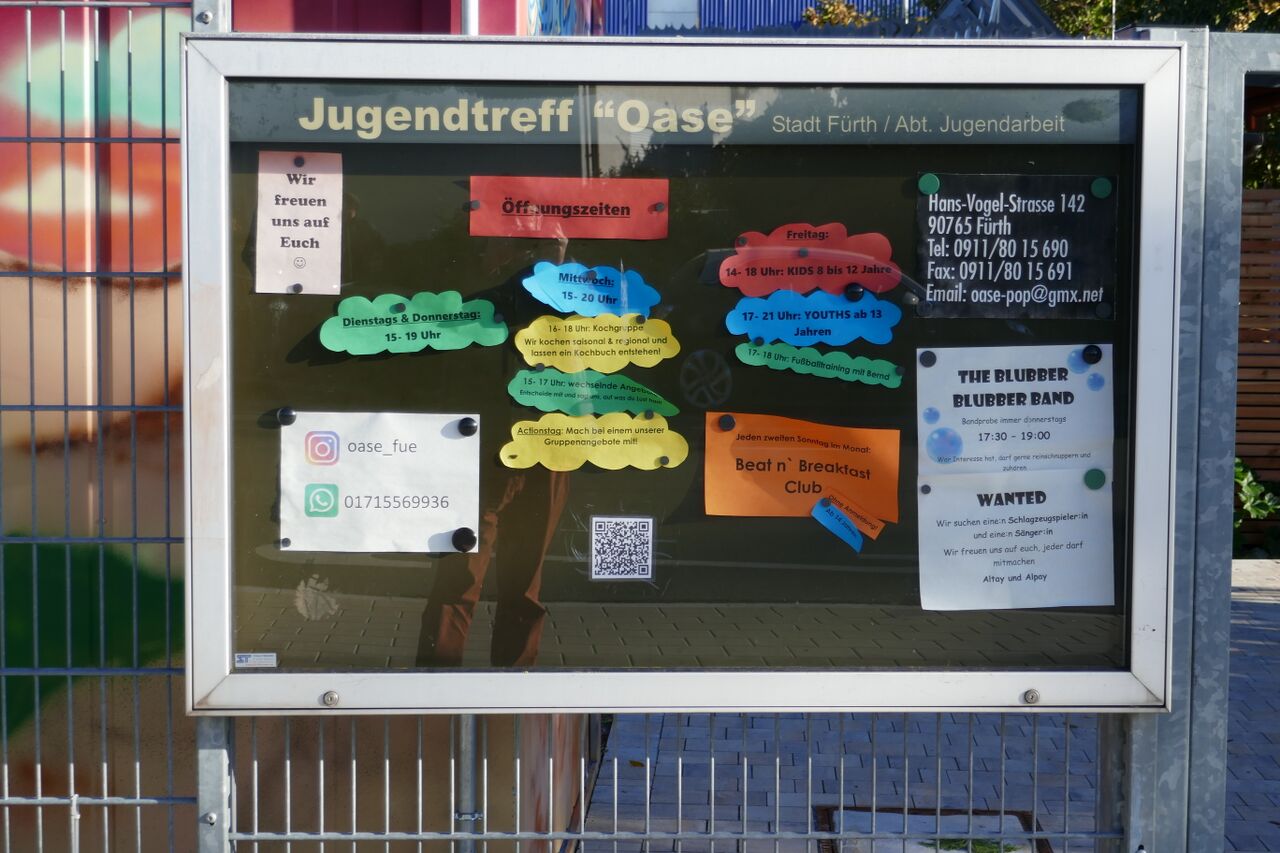 Jugendtreff “Oase” Stadt Fürth / Abt. Jugendarbeit
Wir
freuen
uns auf
Euch
Öffnungszeiten
Dienstags & Donnerstag:
15- 19 Uhr
Mittwoch:
15- 20 Uhr
16- 18 Uhr: Kochgruppe
Wir kochen saisonal & regional und
lassen ein Kochbuch entstehen!
15- 17 Uhr: wechselnde
Entscheide mit und sag uns, auf was du Lust hast!
Actionstag: Mach bei einem unserer
Gruppenangebote mit!
Freitag:
14- 18 Uhr: KIDS 8 bis 12 Jahre
17- 21 Uhr: YOUTHS ab 13
Jahren
17- 18 Uhr: Fußballtraining mit Bernd
Jeden zweiten Sonntag im Monat:
Beat n` Breakfast
Club
Ohne Anmeldung!
Ab 14 Jahren
oase_fue
01715569936
Hans-Vogel-Strasse 142
90765 Fürth
Tel: 0911/80 15 690
Fax: 0911/80 15 691
Email: oase-pop@gmx.net
THE BLUBBER
BLUBBER BAND
Bandprobe immer donnerstags
17:30 - 19:00
Wer Interesse hat, darf gerne reinschnuppern und
zuhören
WANTED
Wir suchen eine:n Schlagzeugspieler:in
und eine:n Sänger:in
Wir freuen uns auf euch, jeder darf
mitmachen
Altay und Alpay